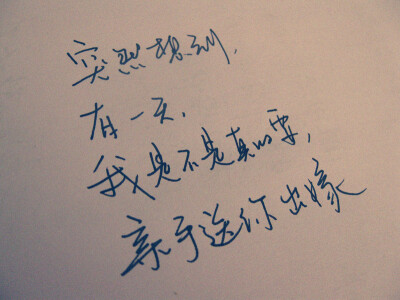 突然想到，
有一天，
我是不是真的要，
亲手送你出嫁